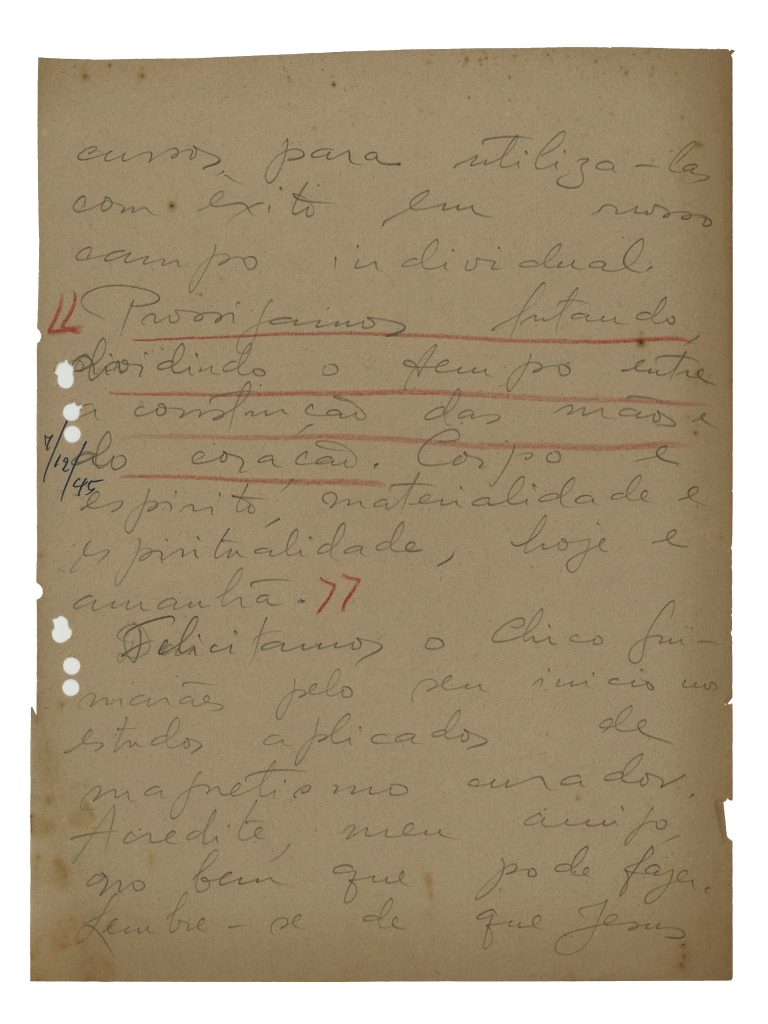 cursos, para utiliza-las
com êxito em nosso
campo individual.
"Prossigamos lutando,
dividindo o tempo entre
a construção das mãos e
do coração. Corpo e
7/12/45
espirito, materialidade e
espiritualidade, hoje e
amanhã."
Felicitamos o Chico Gui-
marães pelo seu inicio nos
estudos aplicados de
magnetismo curador.
Acredite, meu amigo,
no bem que pode fazer.
Lembre-se de que Jesus